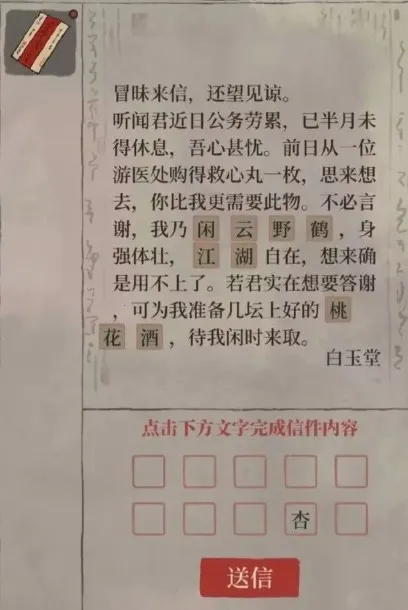 冒昧来信，还望见谅。
听闻君近日公务劳累，已半月未
得休息，吾心甚忧。前日从一位
游医处购得救心丸一枚，思来想
去，你比我更需要此物。不必言
谢，我乃闲云野鹤，身
强体壮，江湖自在，想来确
是用不上了。若君实在想要答谢
，可为我准备几坛上好的桃
花酒，待我闲时来取。
白玉堂
点击下方文字完成信件内容
杏
送信